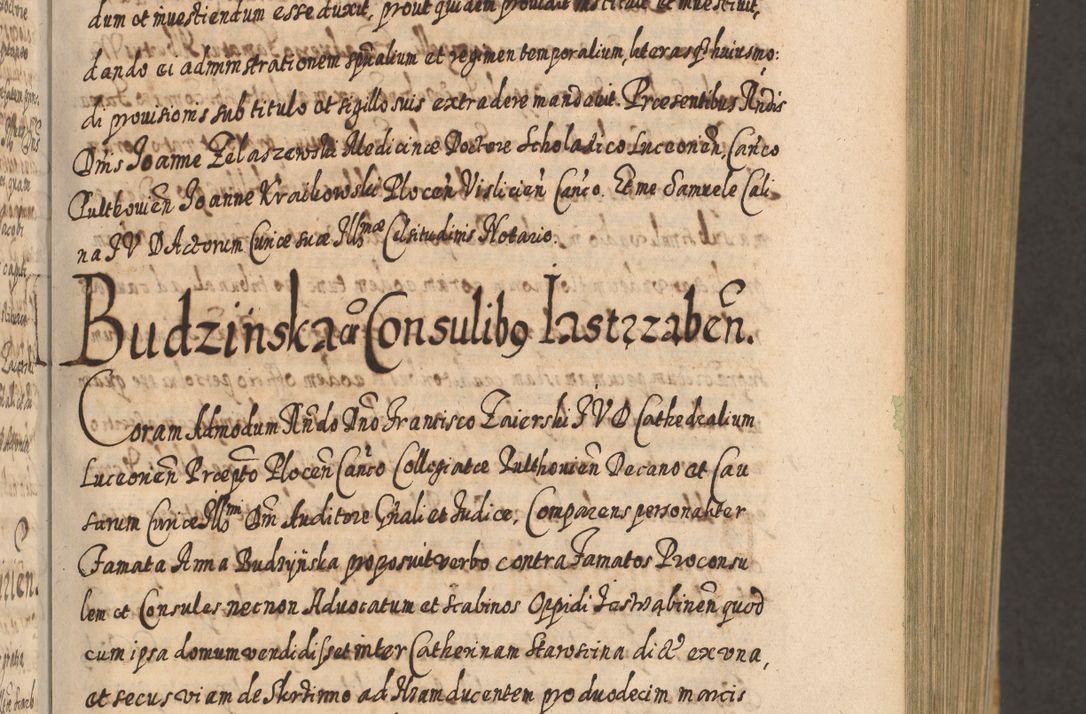 dum et investiendum esse duxit, prout quidem providit instituit et investivit,
dando ei administrationem spūalium et regimen temporalium, literasq3 huiusmo:
di provisionis sub titulo et sigillo suis extradere mandavit. Præsentibus Rńdis
Dnis Joanne Zelaszewski Medicinæ Doctore Scholastico Luceorień, Cańco
Pulthovień Joanne Kraikowski Ploceń Vislicień Cańco. Et me Samuele Cali
na JVD Actorum Curiæ suæ Illmæ Celsitudinis Notario.
Budzińska cō Consulibȝ Jastrząbeń.
Coram Admodum Rńdo Dńo Francisco Zaierski JVD Cathedralium
Luceorień Præpto Ploceń Cańco Collegiatæ Pulthovień Decano et Cau
sarum Curiæ Illmi Dni Auditore Gńali et Judice, Comparens personaliter
Famata Anna Budzyńska proposuit verbo contra Famatos Proconsu
lem et Consules necnon Advocatum et Scabinos Oppidi Jastrząbineń quod
cum ipsa domum vendidisset inter Catherinam Staroscina dictā ex una,
et secus viam de Skrdinno ad Ilzam ducentem pro duodecim marcis